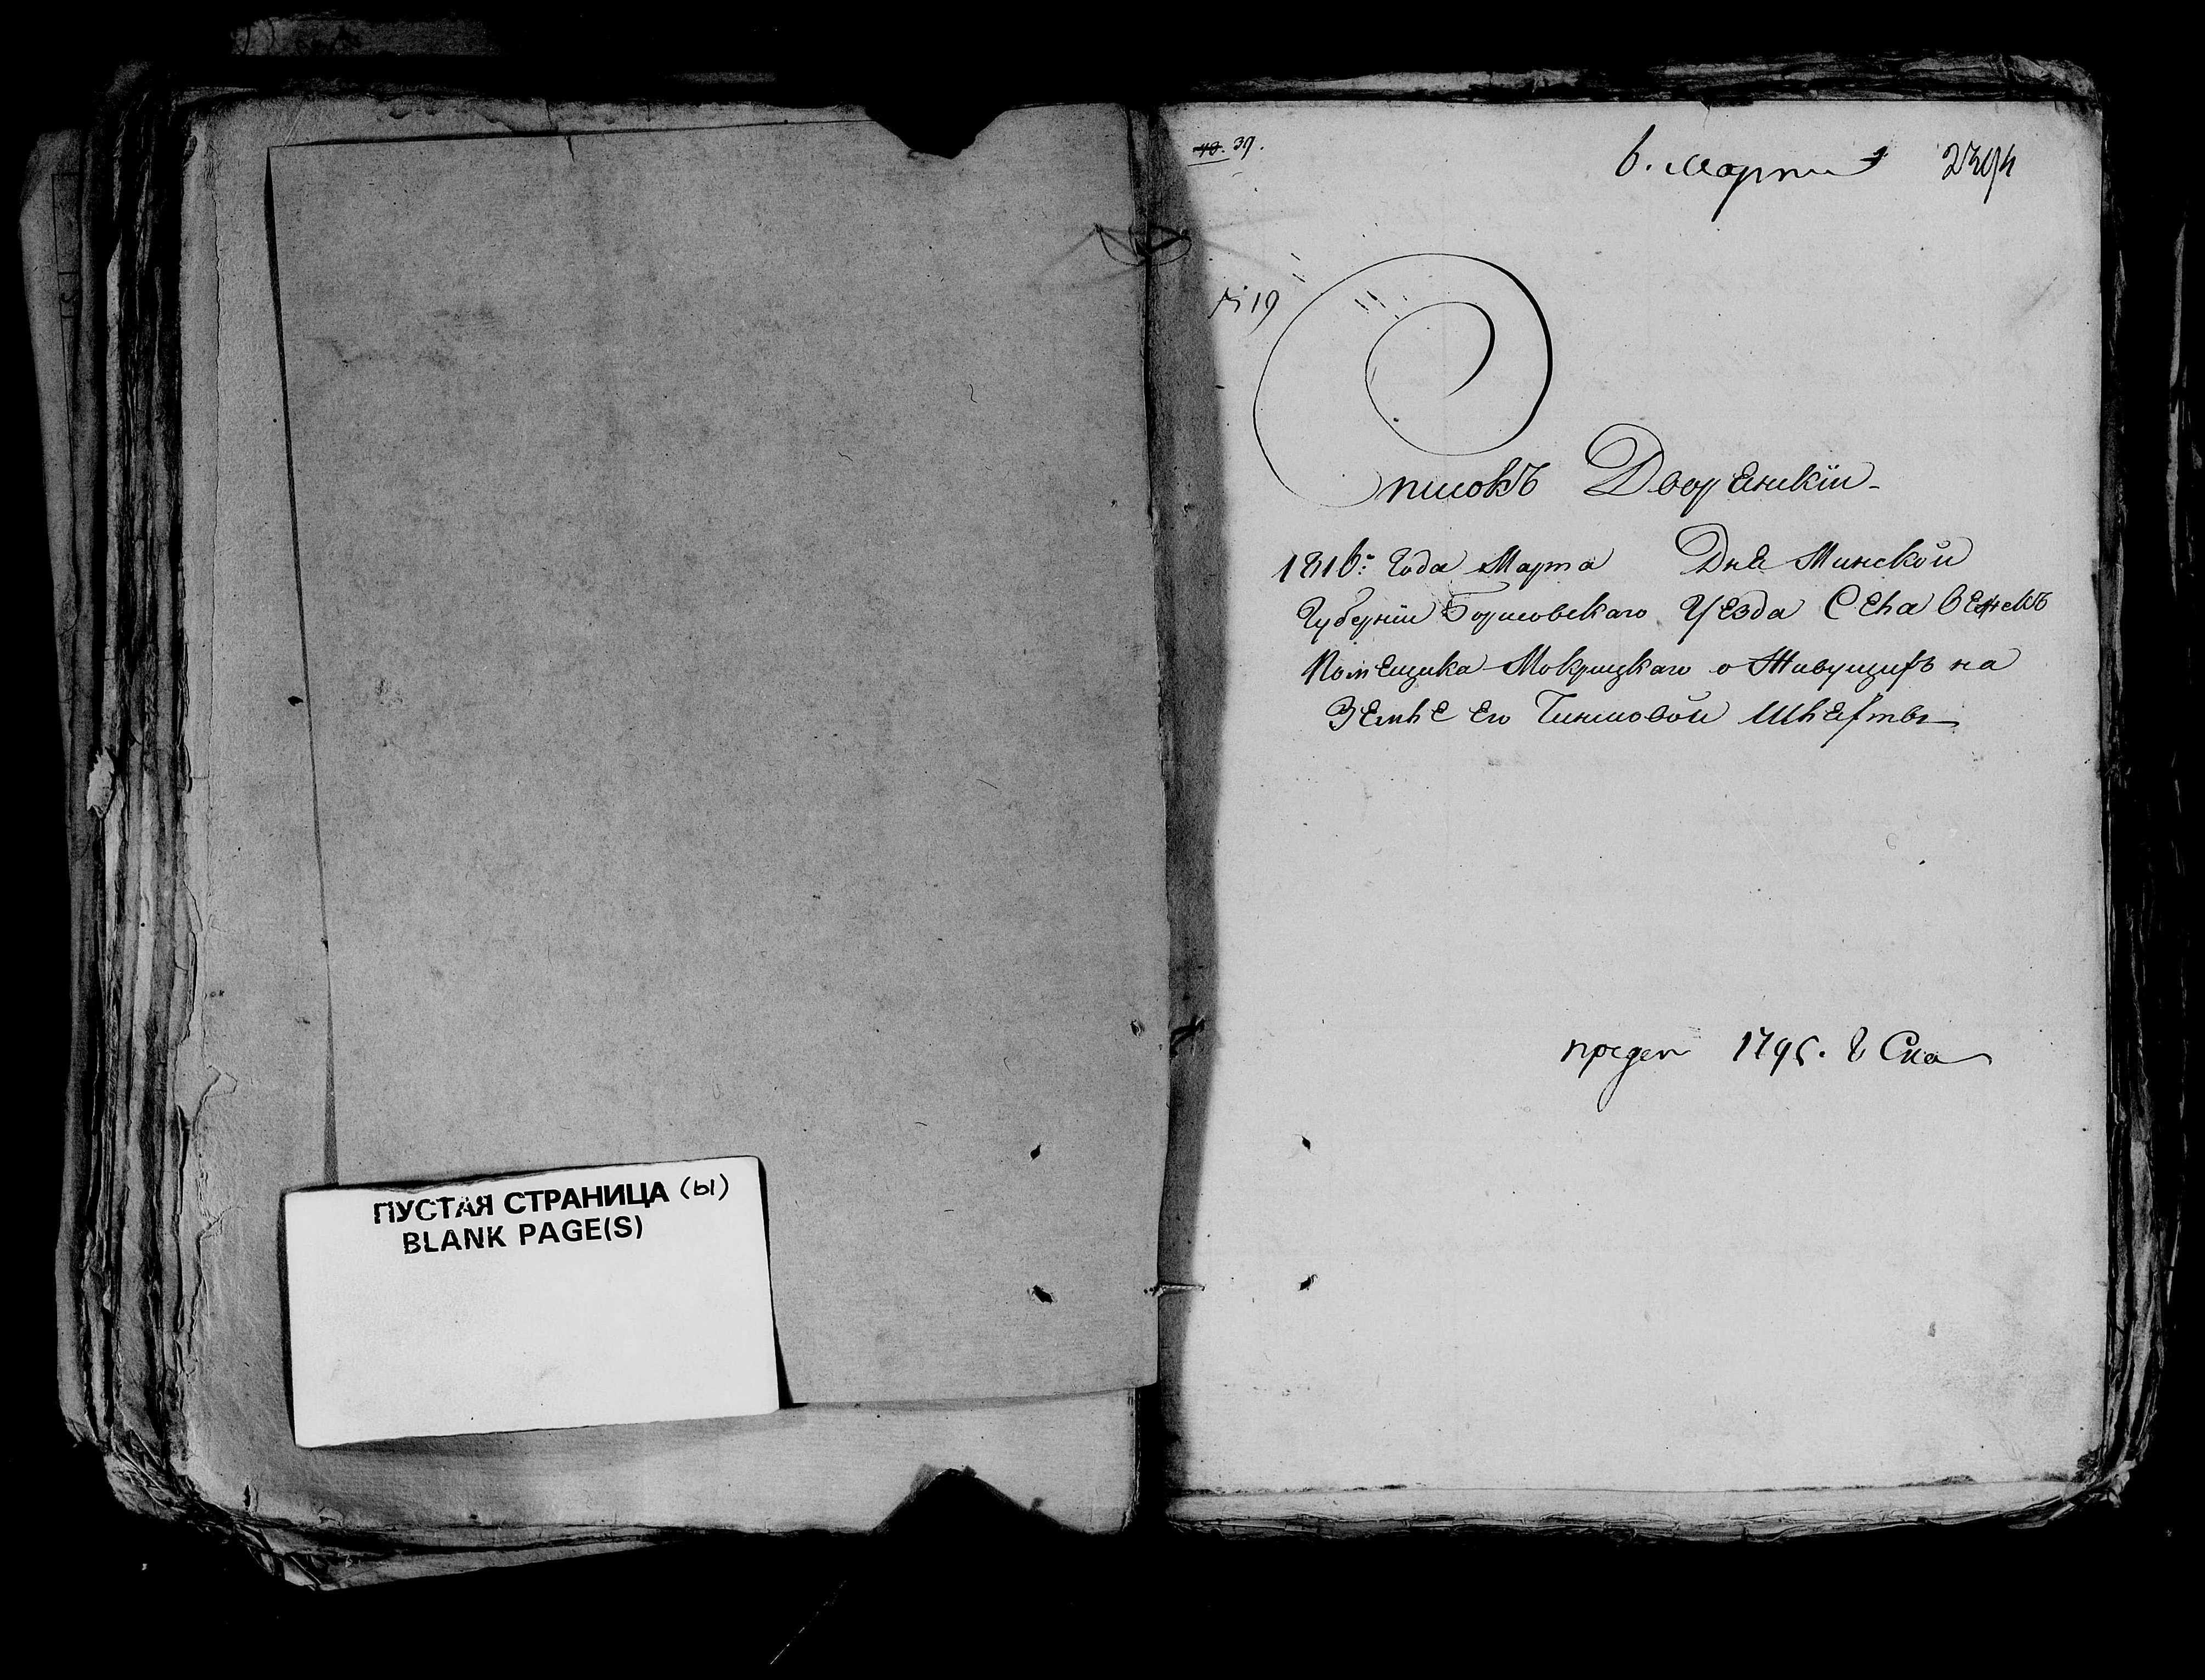 ПУСТАЯ СТРАНИЦА (ы)
BLANK PAGE(S)
40. 39.
6. Марта
№ 19
Списокъ Дворянский
1816: Года Марта Дня Минской
Губернии Борисовскаго Уезда Села
Помещика Мокрицкаго о Живущихъ на
Земле Его Чиншовой Шляхты
1795. Г Ска